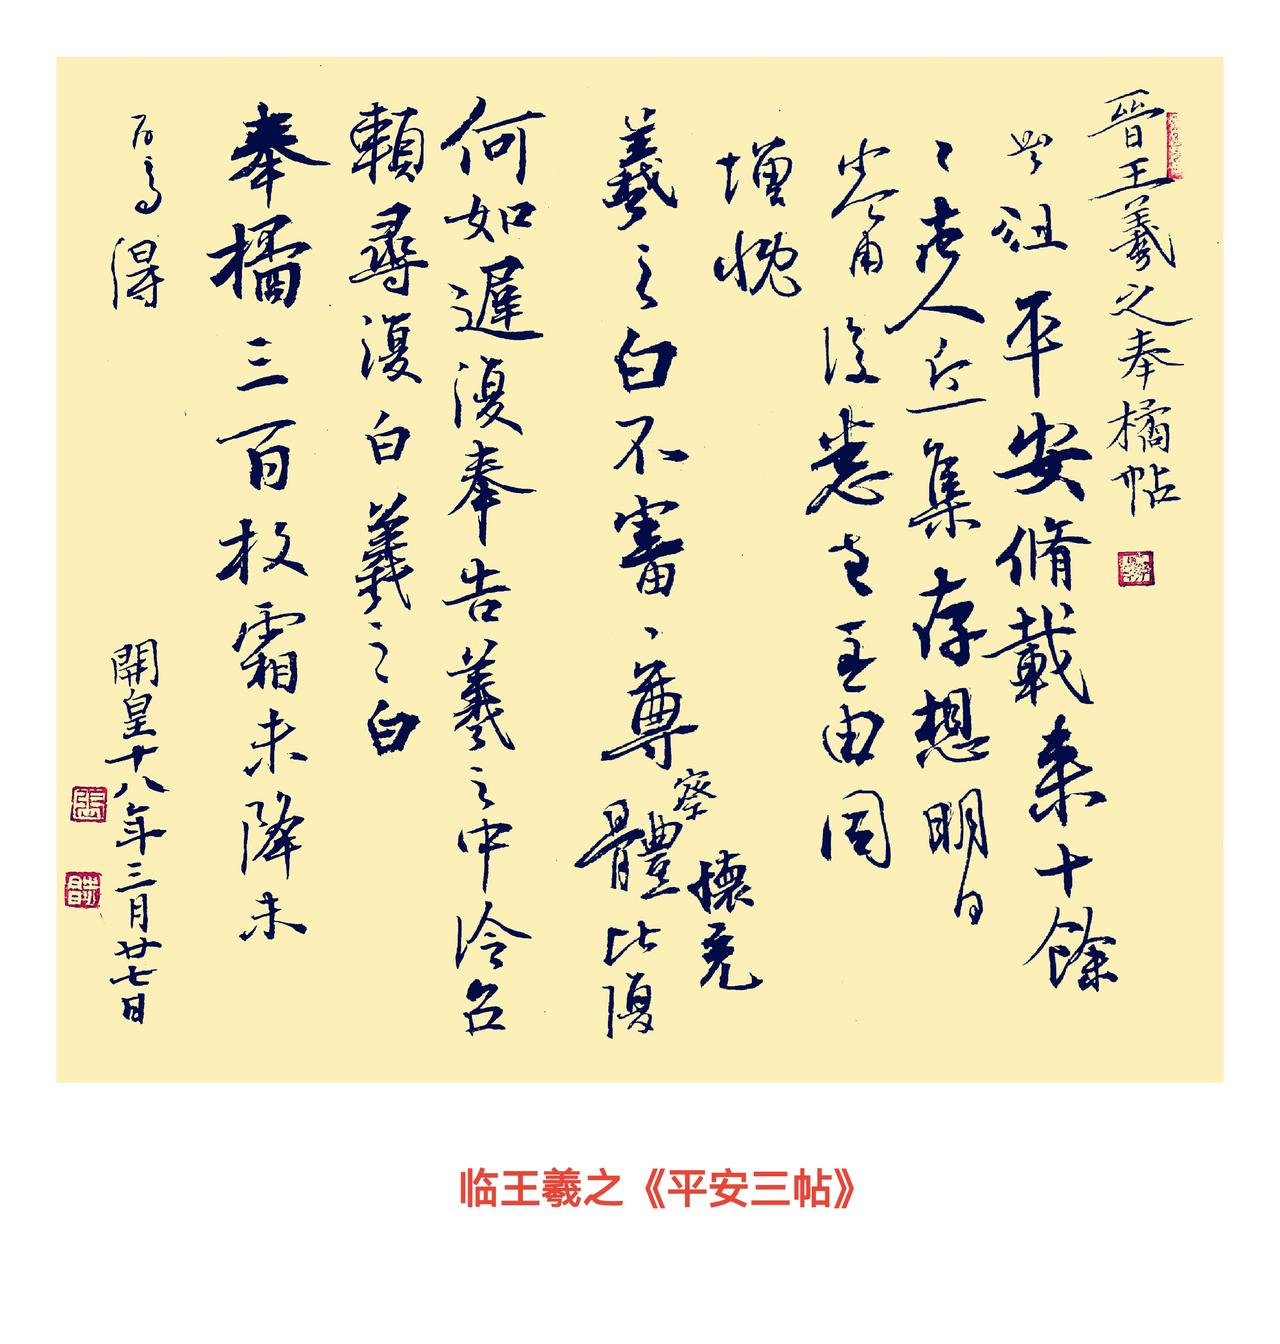 晉王羲之奉橘帖
此粗平安脩載來十餘
々諸人近集存想明日
復悉來无由同
增慨
羲之白不審、尊體比復
察
懷充
何如遲復奉告羲之中冷
賴尋復白羲之白
奉橘三百枚霜未降未
可多得
開皇十八年三月廿七日
临王羲之《平安三帖》